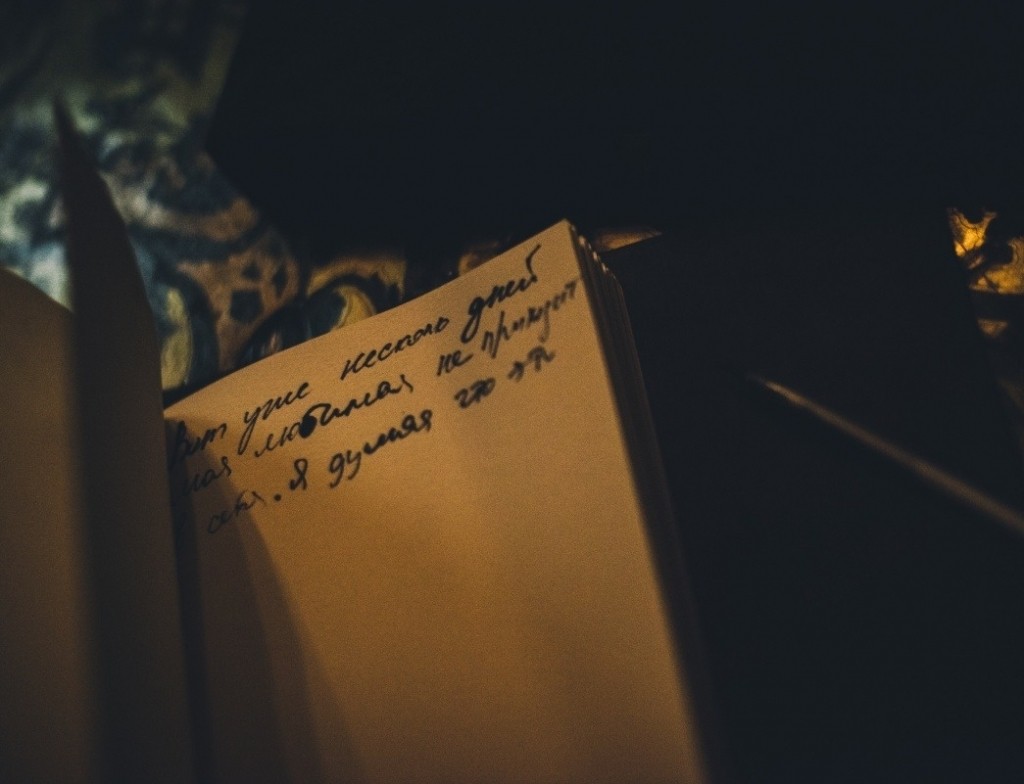 Вот уже несколь дней
моя любимая не приходит
себя. Я думал что